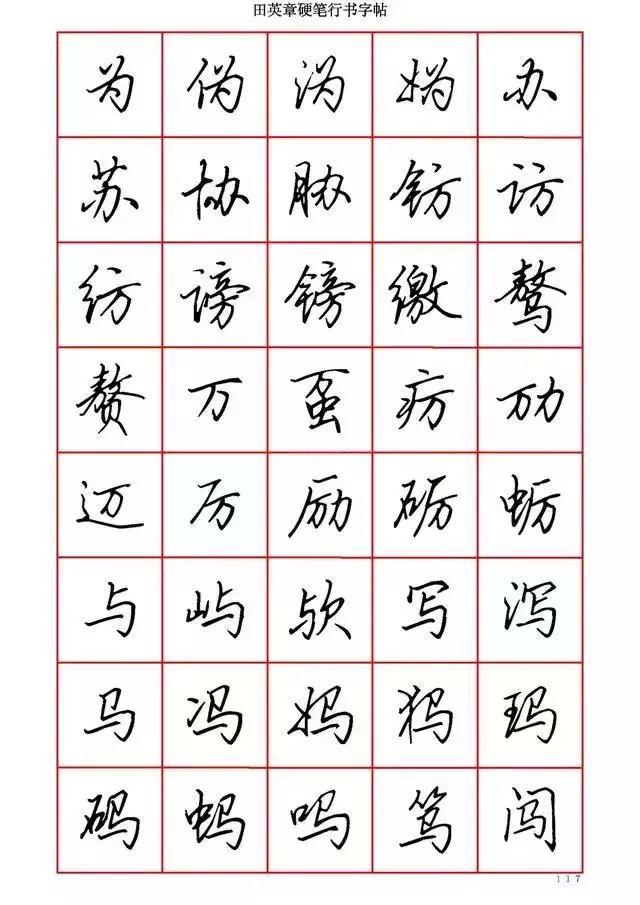 田英章硬笔行书字帖
为伪沩妫办
苏协胁钫访
纺谤镑缴骜
赘万虿疠劢
迈厉励砺蛎
与屿欤写泻
马冯妈犸玛
码蚂吗笃闯
117